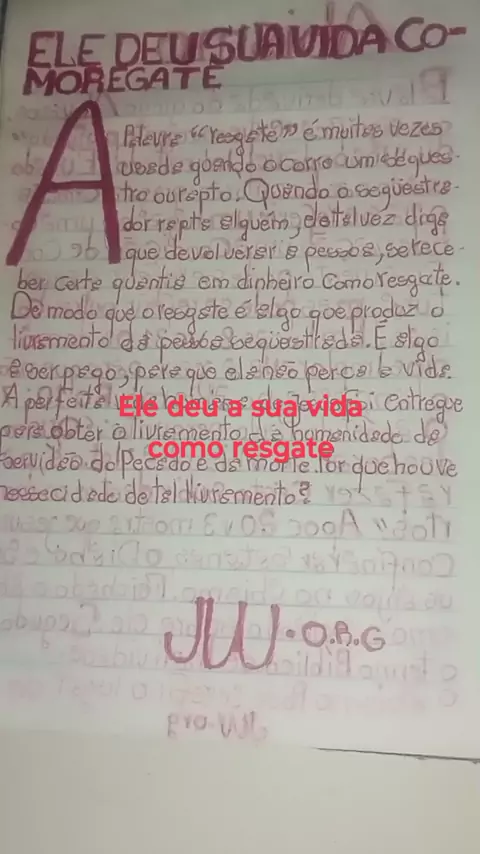 ELE DEU SUA VIDA CO-
MOREGATE
A Palavra "resgate" é muitas vezes
usada quando ocorre um séques-
tro ou rapto. Quando o seqüestra-
dor rapta alguém, ele talvez diga
que devolverá a pessoa, se rece-
ber certa quantia em dinheiro como resgate.
De modo que o resgate é algo que produz o
livramento da pessoa seqüestrada. É algo
a ser pago, para que ela não perca a vida.
A perfeita vida humana de Jesus foi entregue
para obter o livramento da humanidade da
servidão do Pecado e da morte. Por que houve
nessecidade de tal livramento?
Ele deu a sua vida
como resgate
JW.O.R.G